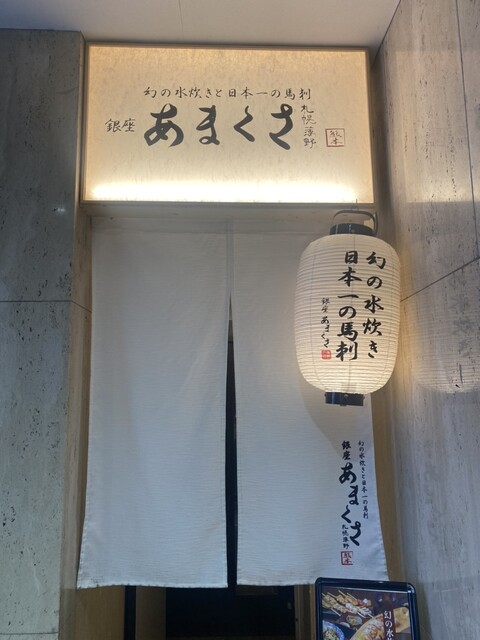 幻の水炊きと日本一の馬刺
銀座 あまくさ 札幌薄野
熊本
幻の水炊き
日本一の馬刺
銀座 あまくさ
幻の水炊きと日本一の馬刺
銀座 あまくさ 札幌薄野
熊本
幻の水